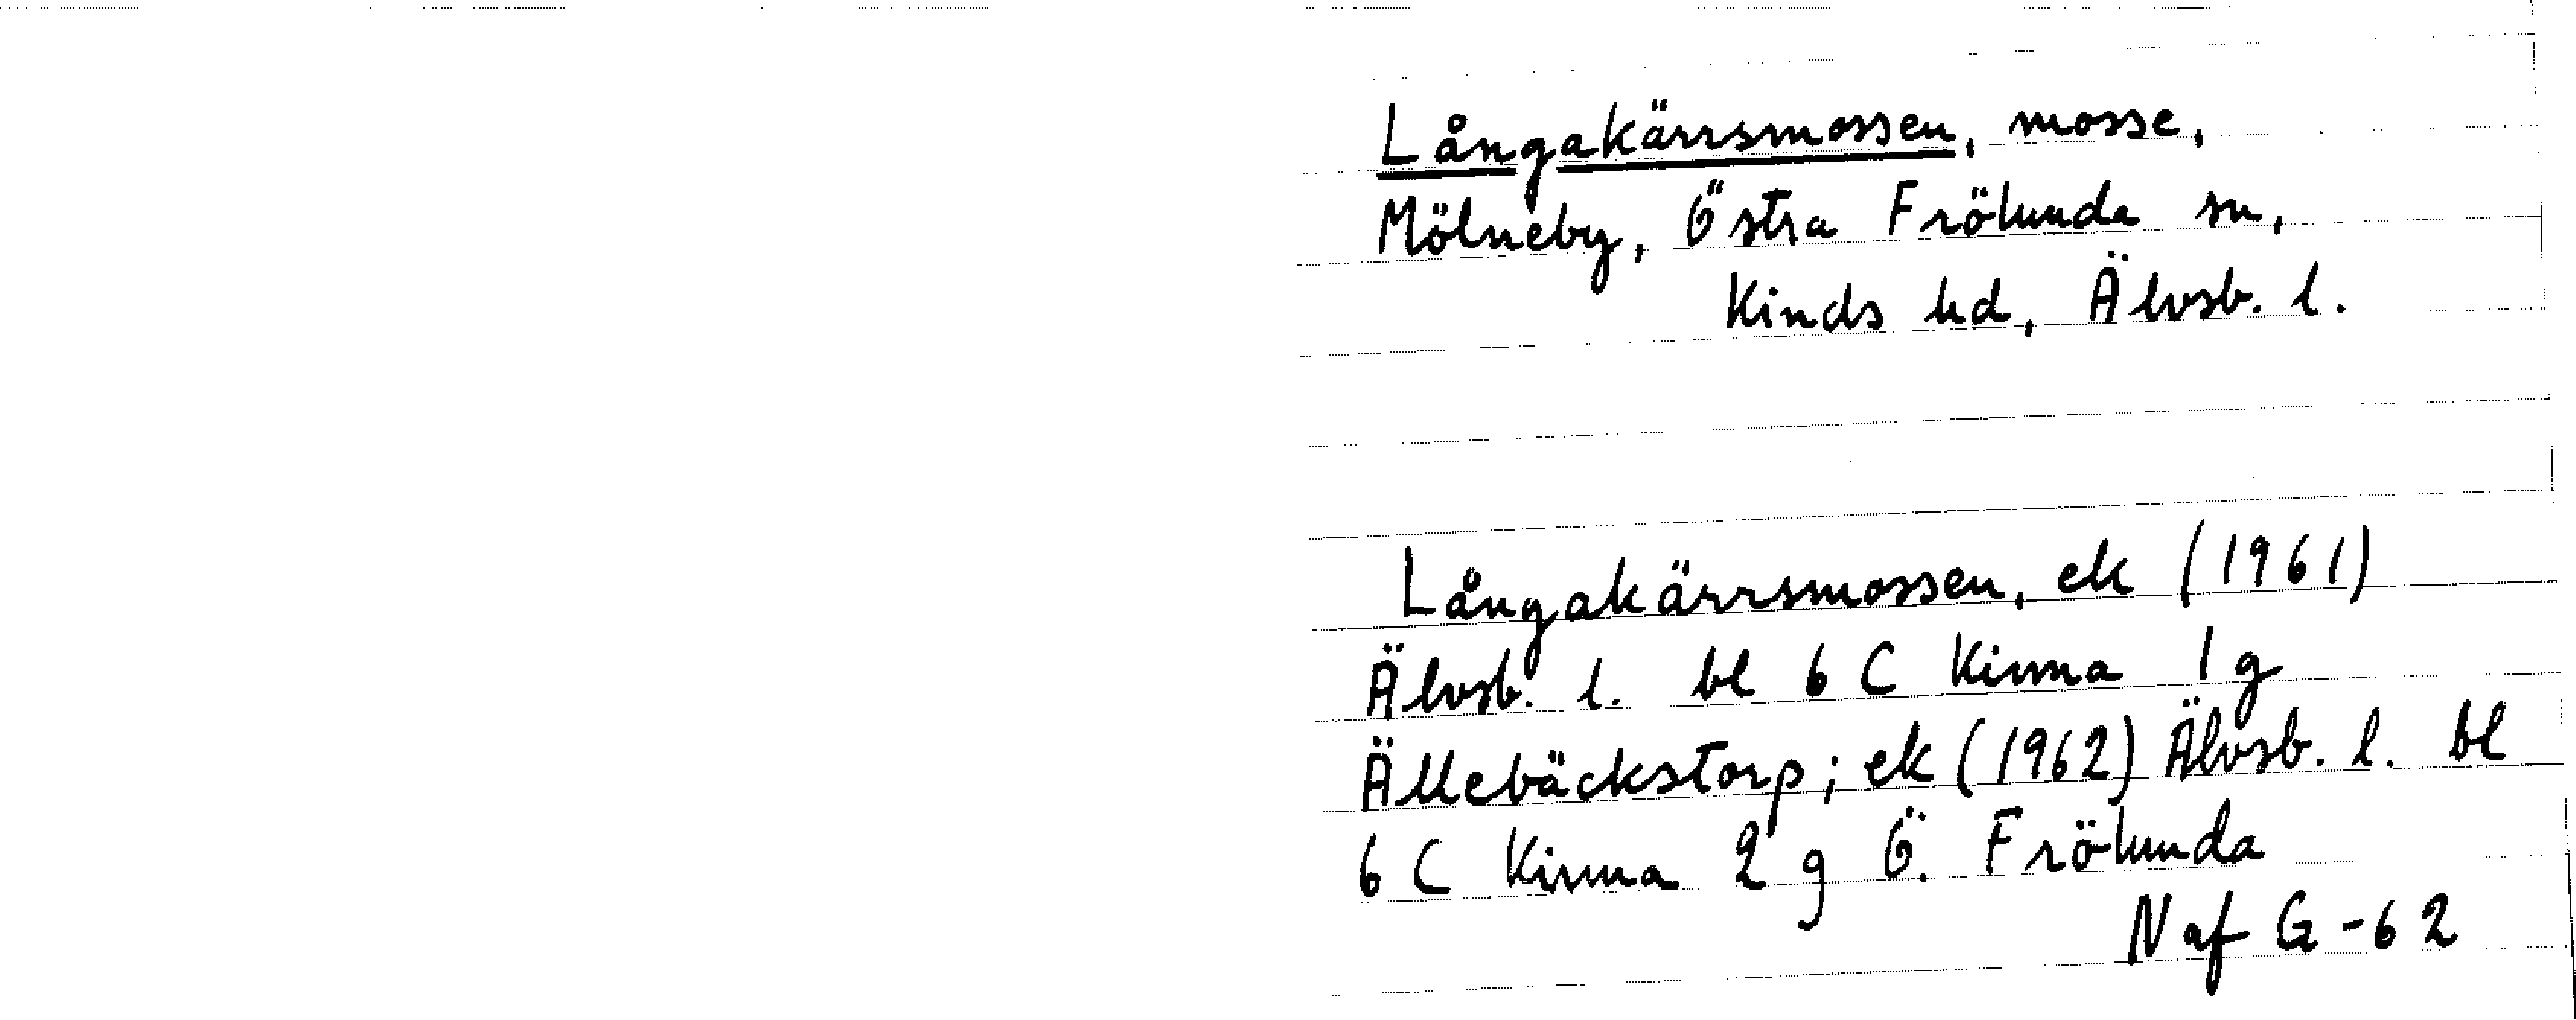 Långakärrsmossen, mosse,
Mölneby, Östra Frölunda sn,
Kinds hd, Älvsb. l.
Långakärrsmossen, ek (1961)
Älvsb. l. bl 6 C Kinna 1 g
Ällebäckstorp; ek (1962) Älvsb. l. bl
6 C Kinna 2 g Ö. Frölunda
Naf G -62